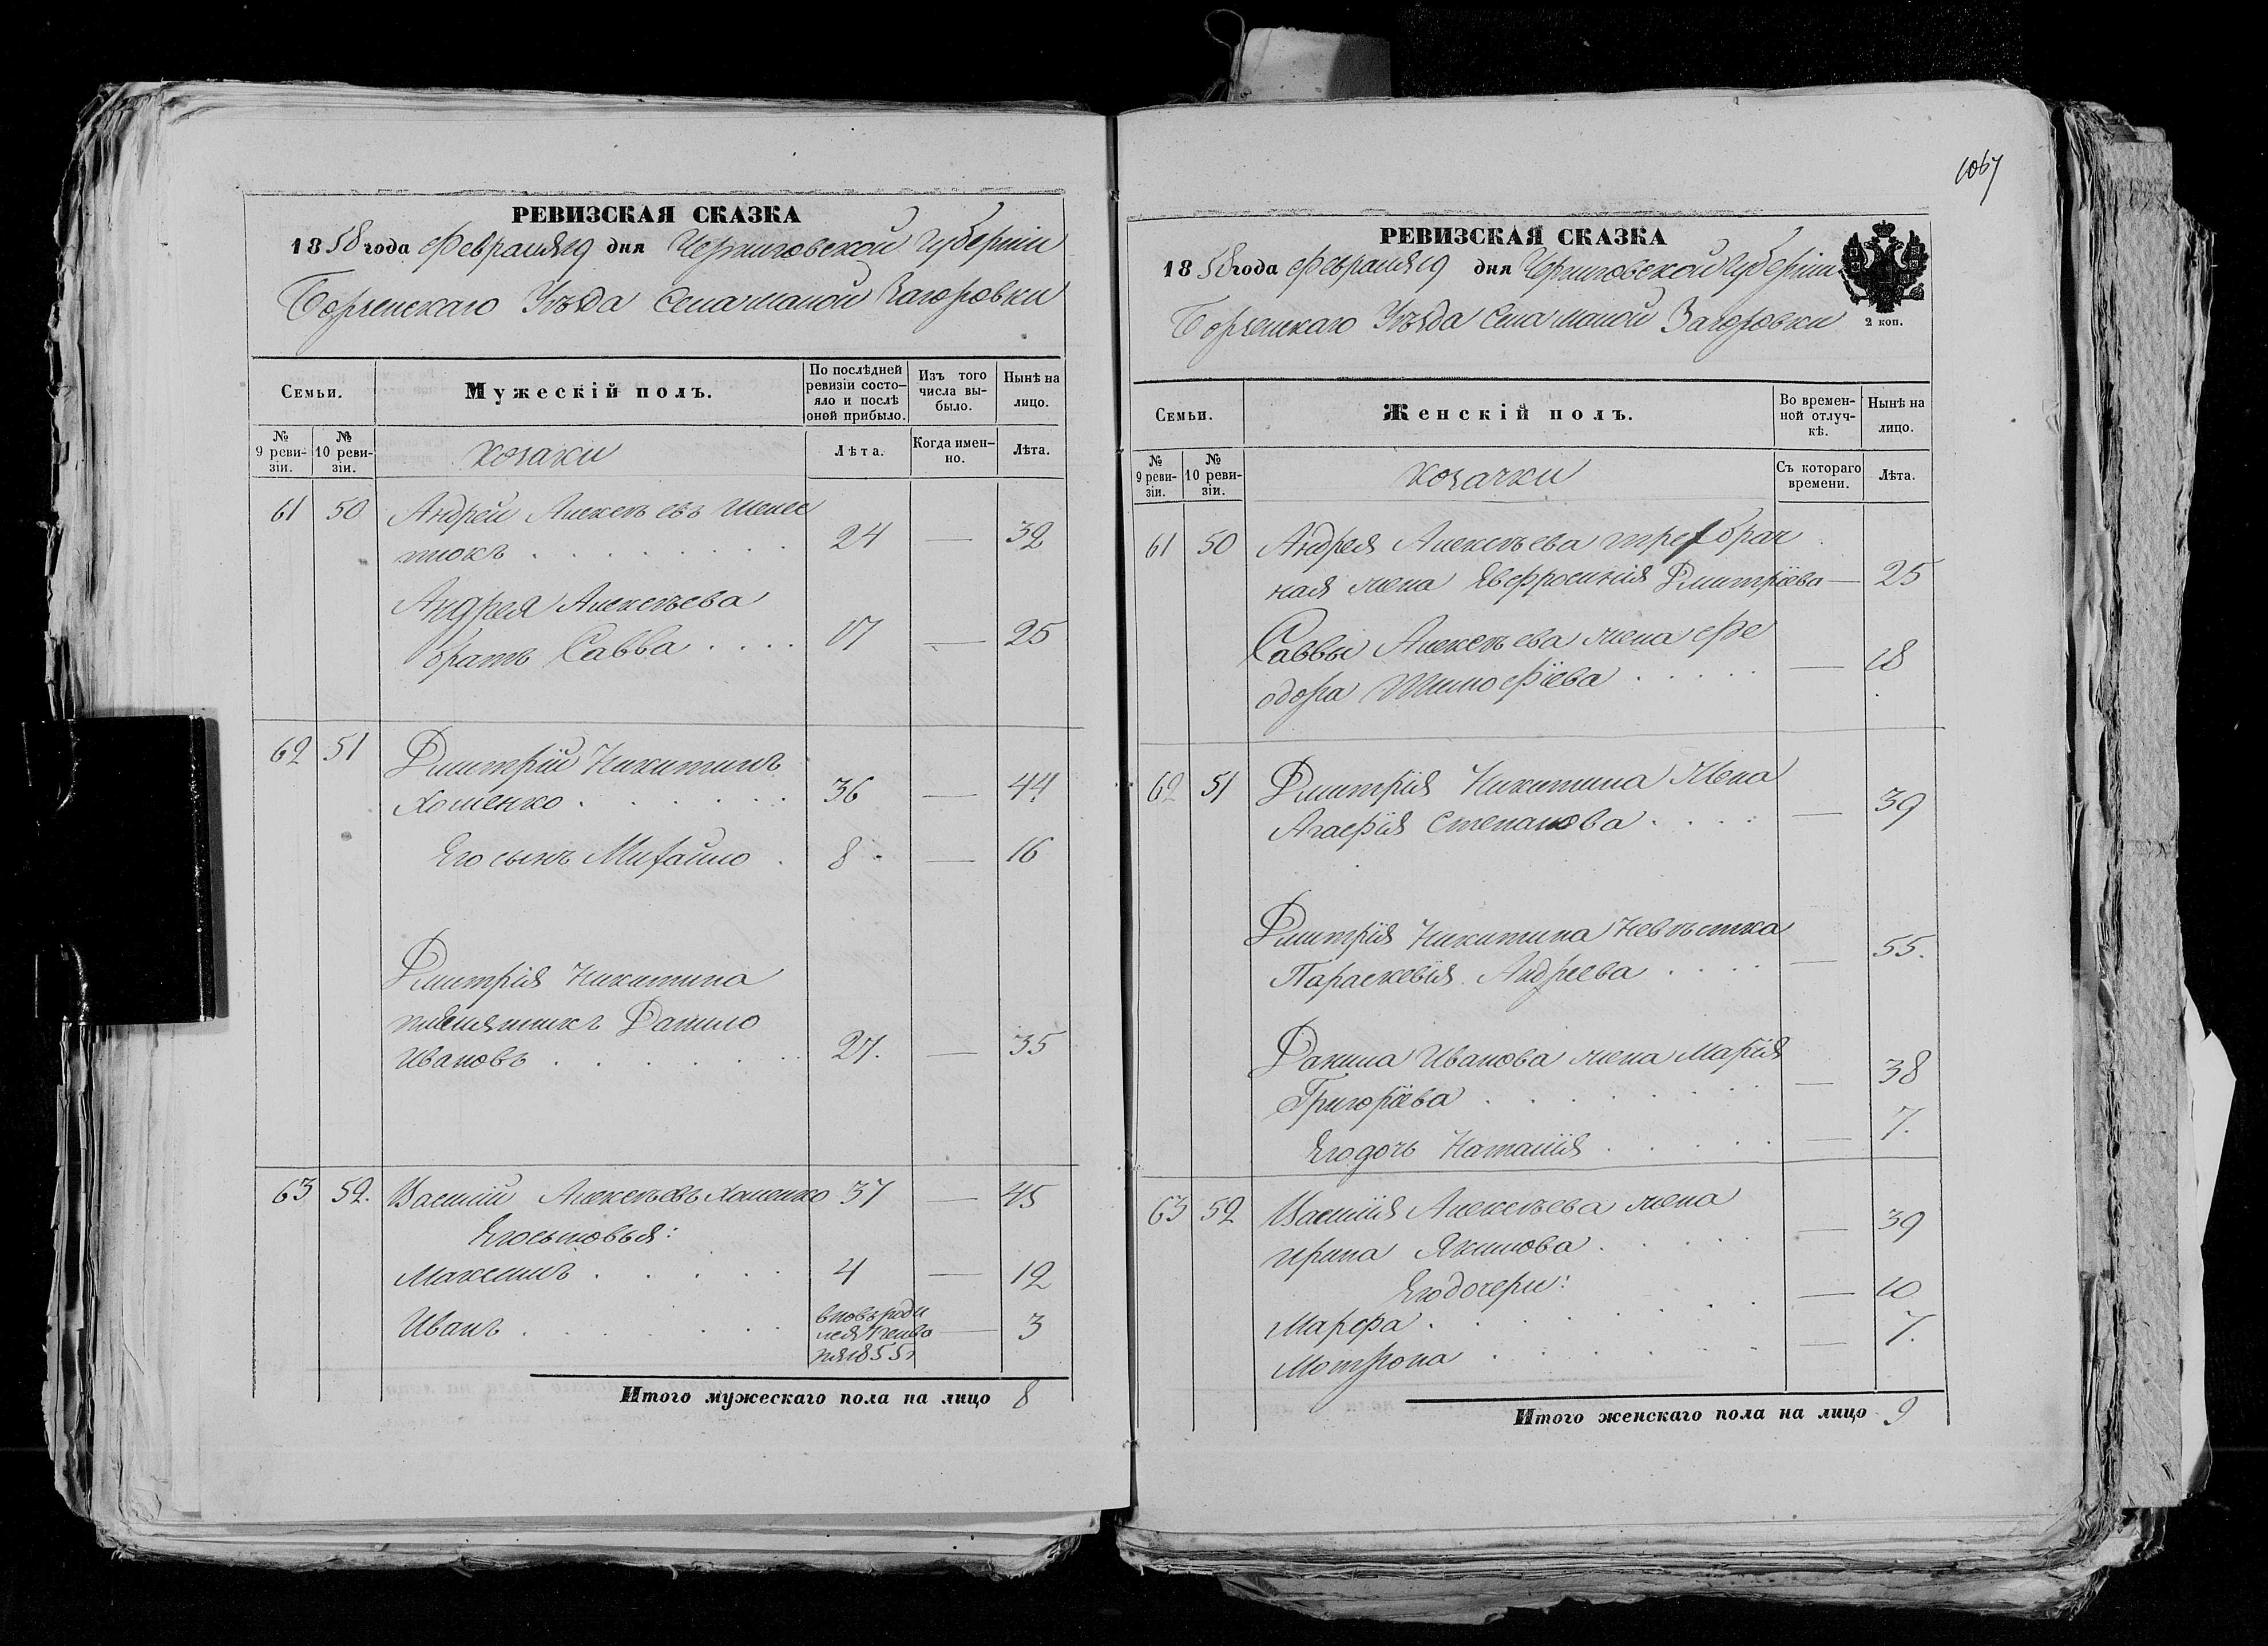 РЕВИЗСКАЯ СКАЗКА
1858 года февраля 19 дня Черниговской губернии
Борзенскаго Уѣзда Села малой Загоровки
Семьи.
Мужескій полъ.
По послѣдней ревизіи состо-
яло и послѣ оной прибыло.
Изъ того числа вы-
было.
Нынѣ на лицо.
№ 9 реви-
зіи.
№ 10 реви-
зіи.
козаки
Лѣта.
Когда имен-
но.
Лѣта.
61 50 Андрей Алексѣевъ
24 — 32
Андрея Алексѣева
братъ Савва . . . . 17 — 25
62 51 Дмитрій Никитинъ
Хоменко . . . . . . 36 — 44
Его сынъ Михайло . 8 — 16
Дмитрія Никитина
племянникъ Данило
Ивановъ . . . . . . 27. — 35
63 52. Василій Алексѣевъ Хоменко 37 — 45
Его сыновья:
Максимъ . . . . . 4 — 12
Иванъ . . . . . . вновь роди
лся Генва
ря 1855 г — 3
Итого мужескаго пола на лицо 8
1067
РЕВИЗСКАЯ СКАЗКА
1858 года февраля 19 дня Черниговской губерніи
Борзенскаго Уѣзда Села малой Загоровки
2 коп.
Семьи.
Женскій полъ.
Во времен-
ной отлуч-
кѣ.
Нынѣ на лицо.
№ 9 реви-
зіи.
№ 10 реви-
зіи.
козачки
Съ котораго времени.
Лѣта.
61 50 Андрея Алексѣева трехбрач
ная жена Евфросинія Дмитріева — 25
Саввы Алексѣева жена Фе
одора Тимофіева . . . . . — 18
62 51 Дмитрія Никитина Жена
Агафія Степанова . . . . — 39
Дмитрія Никитина Невѣстка
Параскевія Андреева . . . . — 55.
Данила Иванова жена Марія
Григоріева . . . . . . — 38
Его дочь Наталія . . . . . — 7.
63 52 Василія Алексѣева жена
Ирина Якимова . . . . . — 39
Его дочери:
Марфа . . . . . . . — 10
Мотрона . . . . . . — 7.
Итого женскаго пола на лицо 9